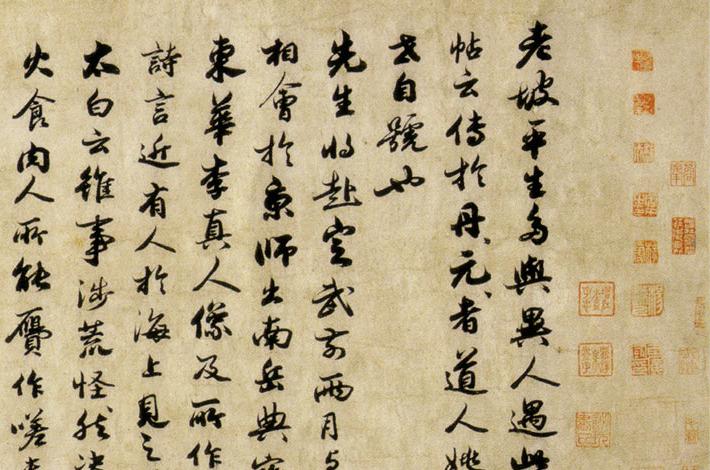 老坡平生多與異人遇此
帖云傳於丹、元、者道人姚
世自號也
先生將赴定武前兩月與
相會於京師出南岳典寶
東華李真人像及所作
詩言近有人於海上見之
太白云雖事涉荒怪然決
火食肉人所能贗作嗟